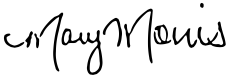 Mary Morris